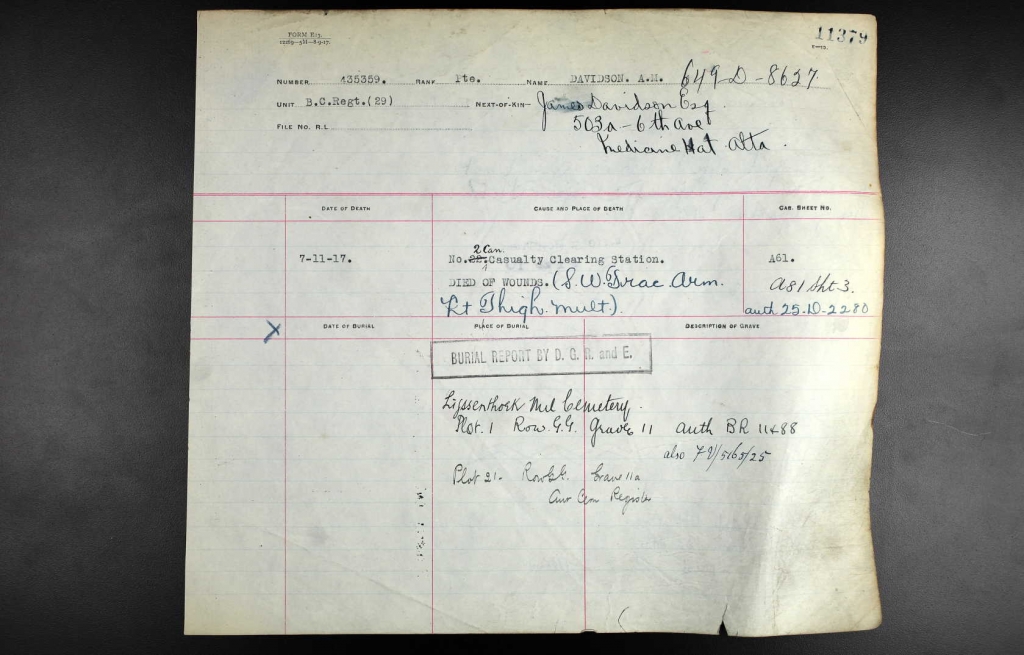 FORM E13.
11379
NUMBER 435359. RANK Pte. NAME DAVIDSON. A.M. 649 D-8627
UNIT B.C.Regt.(29) NEXT-OF-KIN— James Davidson Esq
503a - 6th Ave
FILE NO. R.L.
Medicine Hat Alta.
DATE OF DEATH CAUSE AND PLACE OF DEATH CAS. SHEET NO.
2 Can.
7-11-17. No.22.Casualty Clearing Station. A61.
DIED OF WOUNDS. (S.W. Frac Arm. A81 Sht 3.
Rt Thigh. mult). auth 25.D-2280
X DATE OF BURIAL PLACE OF BURIAL DESCRIPTION OF GRAVE
BURIAL REPORT BY D. G. R. and E.
Lijssenthoek Mil Cemetery.
Plot. 1 Row. G.G. Grave 11 auth BR 11488
also
Plot 21- Row GG. Grave 11a
Cem Register